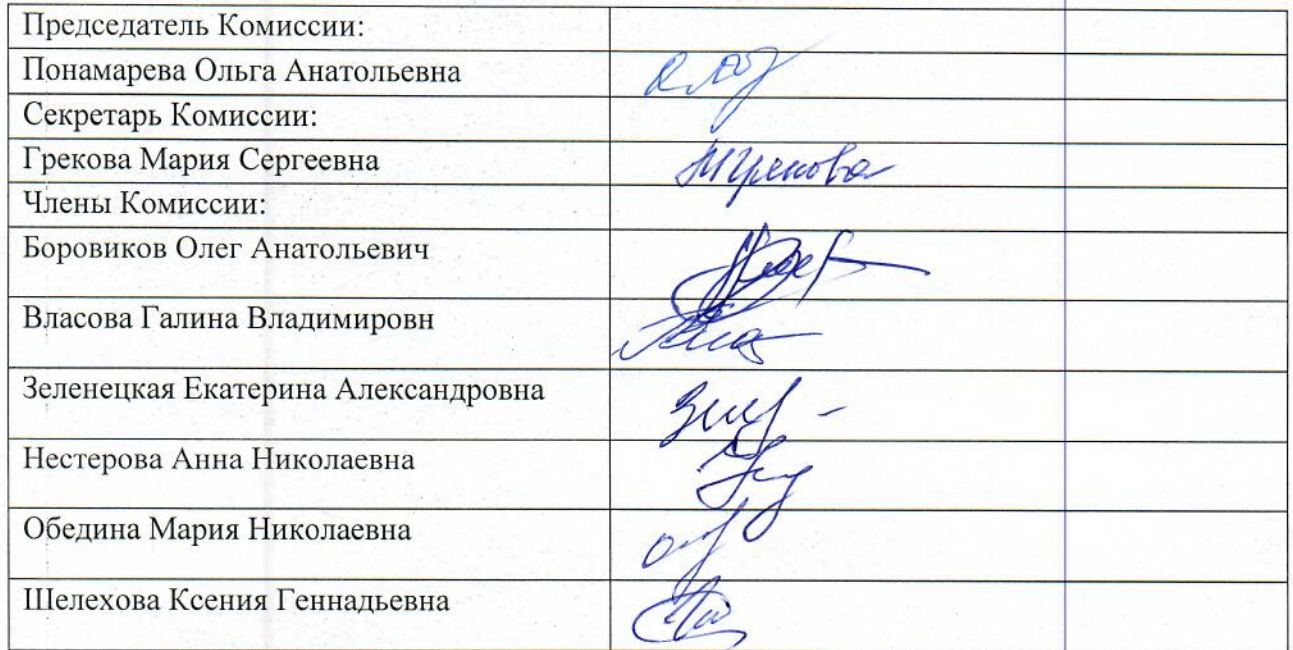 Председатель Комиссии:
Понамарева Ольга Анатольевна
Секретарь Комиссии:
Грекова Мария Сергеевна
МГрекова
Члены Комиссии:
Боровиков Олег Анатольевич
Власова Галина Владимировн
Зеленецкая Екатерина Александровна
Нестерова Анна Николаевна
Обедина Мария Николаевна
Шелехова Ксения Геннадьевна